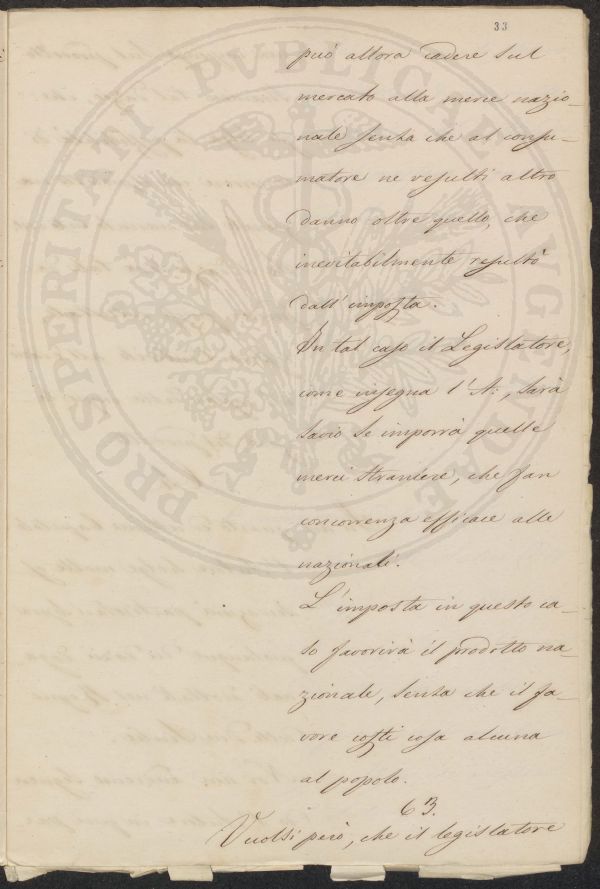 33
può allora cadere sul
mercato alla merce nazio-
nale senza che al consu-
matore ne resulti altro
danno oltre quello, che
inevitabilmente resultò
dall' imposta.
In tal caso il Legislatore,
come insegna l'A:, sarà
savio se imporrà quelle
merci straniere, che fan
concorrenza efficace alle
nazionali.
L'imposta in questo ca-
so favorirà il prodotto na-
zionale, senza che il fa-
vore costi cosa alcuna
al popolo.
63.
Vuolsi però, che il legislatore
PROSPERITATI PVBLICAE AVGENDAE